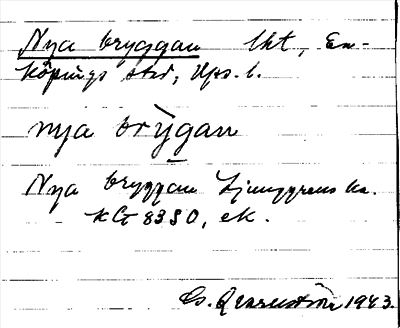 Nya bryggan lht, En-
köpings stad, Ups. l.
nya brygan
Nya bryggan Ljunggrens ka.
KG 8350, ek.
1943.